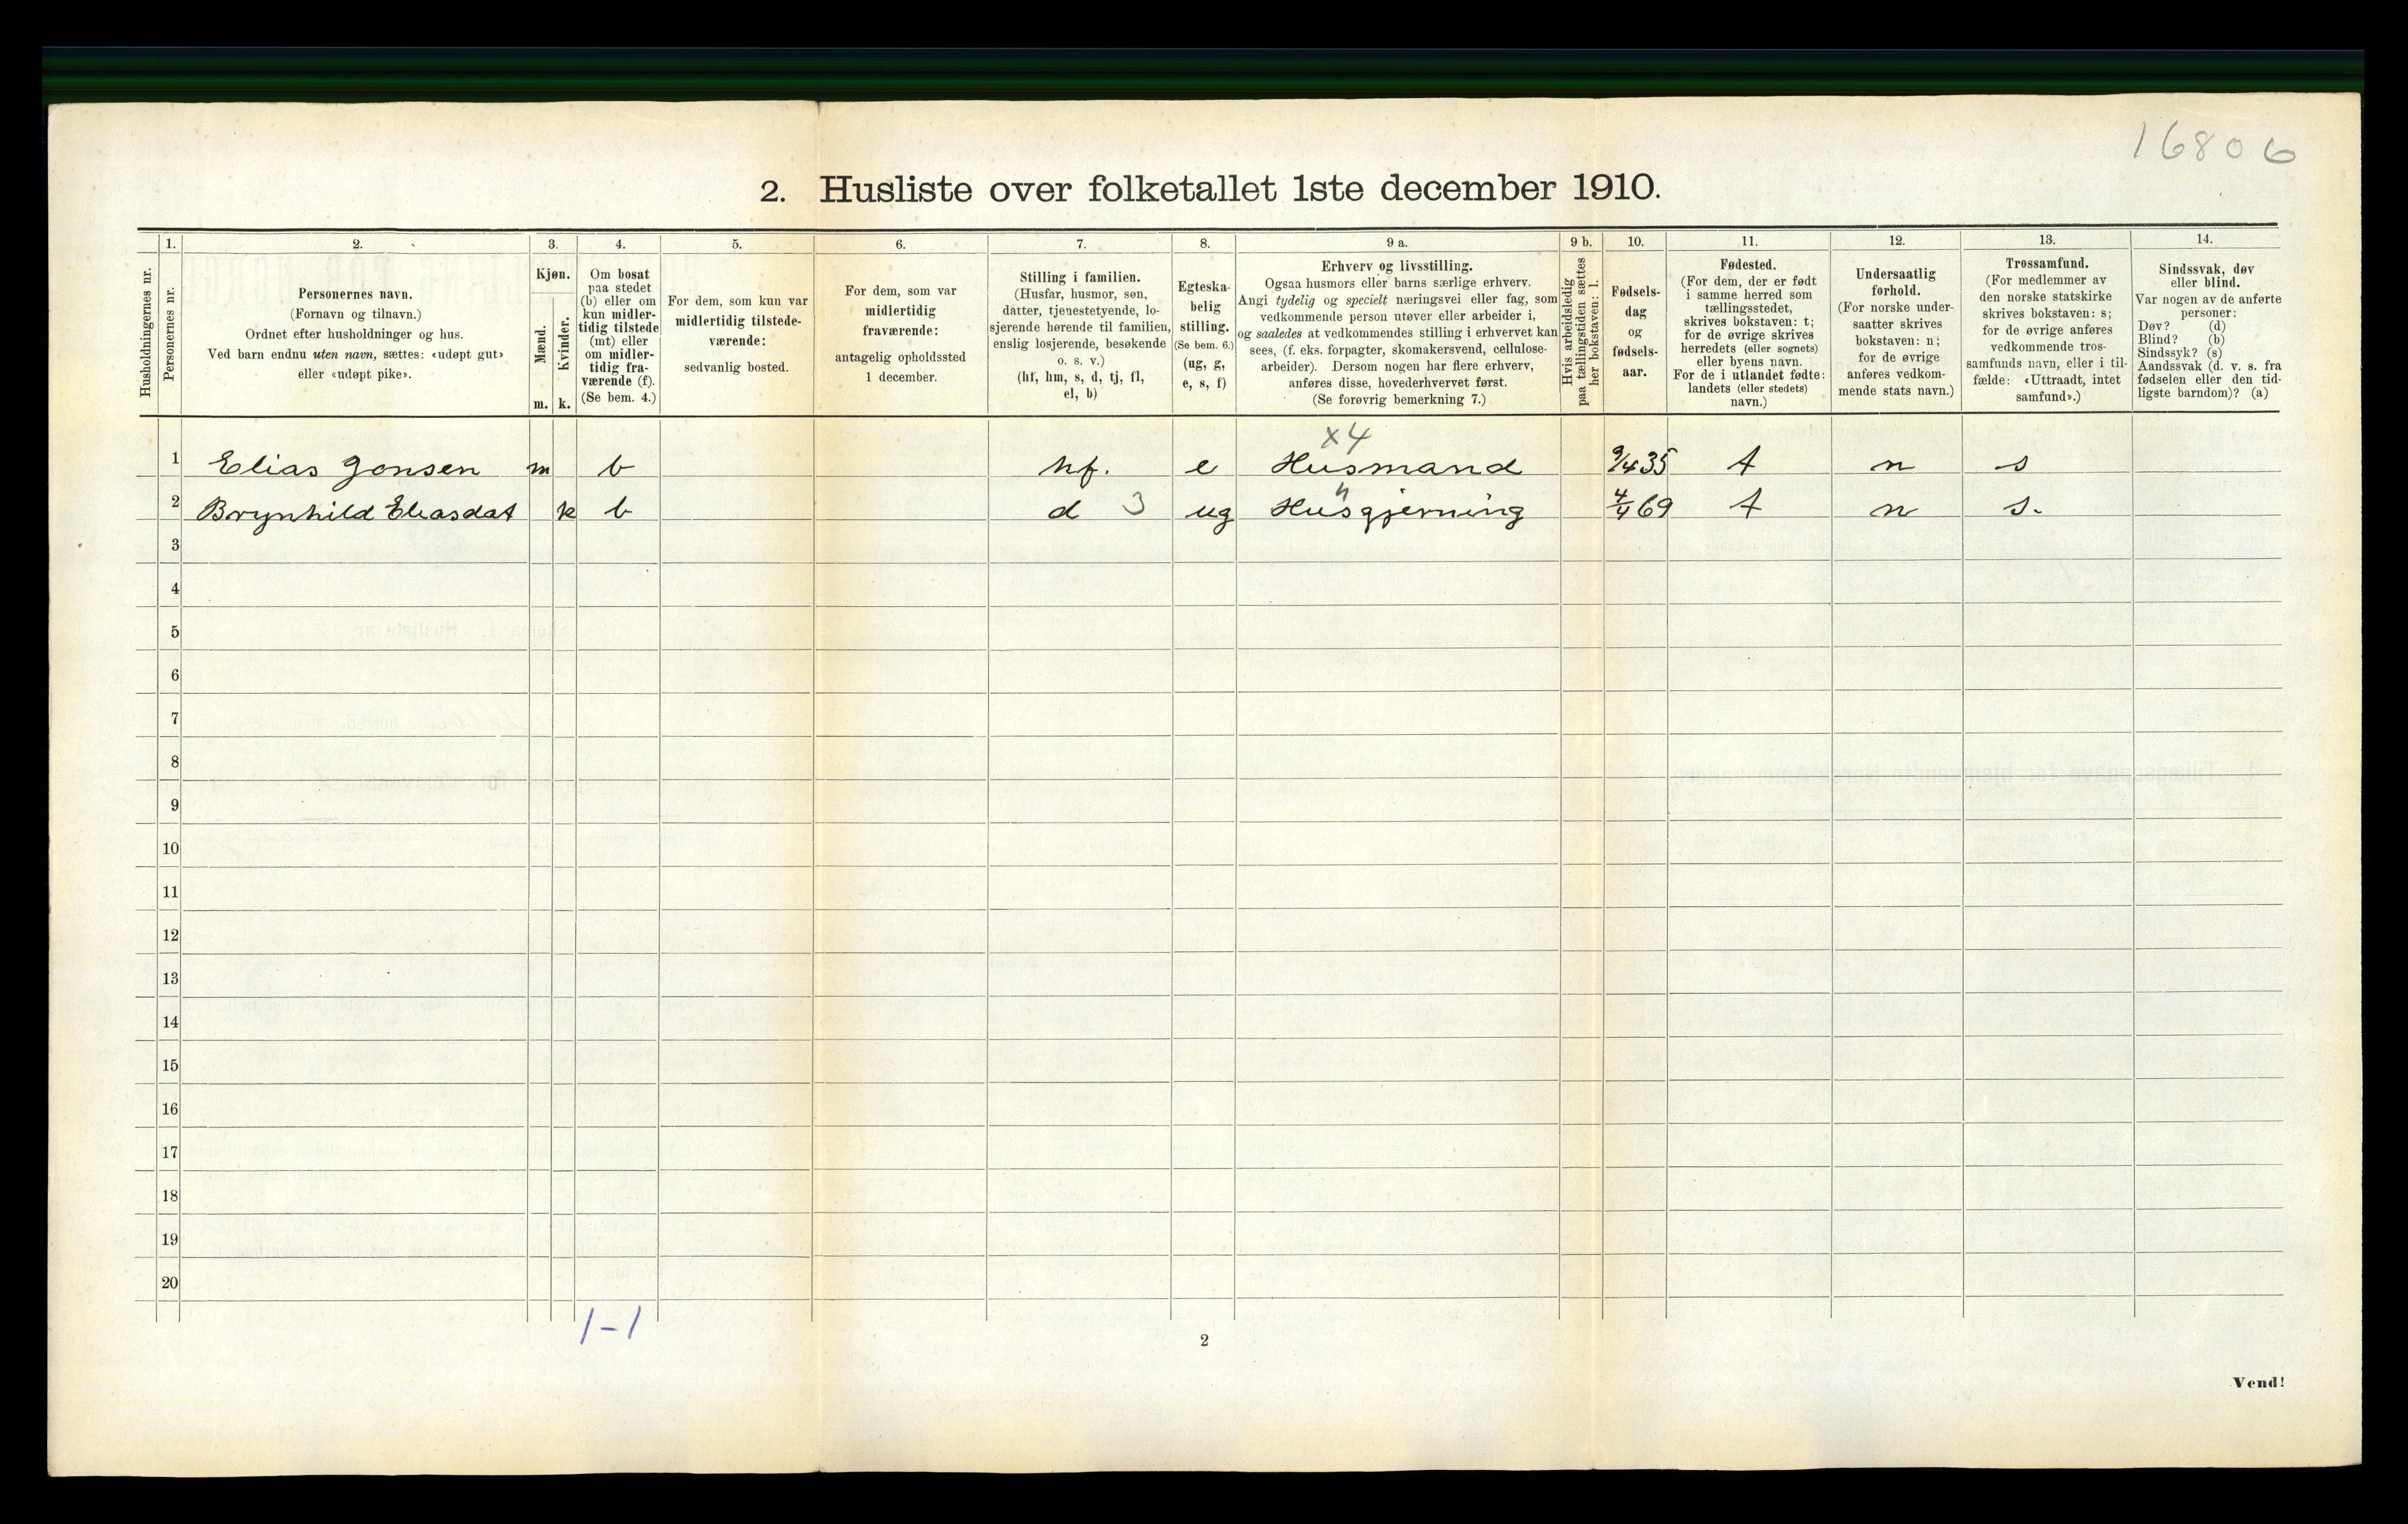 16806
2. Husliste over folketallet 1ste december 1910.
Husholdningernes nr.
1.
Personernes nr.
2.
Personernes navn.
(Fornavn og tilnavn.)
Ordnet efter husholdninger og hus.
Ved barn endnu uten navn, sættes: «udøpt gut»
eller «udøpt pike».
3.
Kjøn.
Mænd.
Kvinder.
m. k.
4.
Om bosat
paa stedet
(b) eller om
kun midler-
tidig tilstede
(mt) eller
om midler-
tidig fra-
værende (f).
(Se bem. 4.)
5.
For dem, som kun var
midlertidig tilstede-
værende:
sedvanlig bosted.
6.
For dem, som var
midlertidig
fraværende:
antagelig opholdssted
1 december.
7.
Stilling i familien.
(Husfar, husmor, søn,
datter, tjenestetyende, lo-
sjerende hørende til familien,
enslig losjerende, besøkende
o. s. v.)
(hf, hm, s, d, tj, fl,
el, b)
8.
Egteska-
belig
stilling.
(Se bem. 6.)
(ug, g,
e, s, f)
9 a.
Erhverv og livsstilling.
Ogsaa husmors eller barns særlige erhverv.
Angi tydelig og specielt næringsvei eller fag, som
vedkommende person utøver eller arbeider i,
og saaledes at vedkommendes stilling i erhvervet kan
sees, (f. eks. forpagter, skomakersvend, cellulose-
arbeider). Dersom nogen har flere erhverv,
anføres disse, hovederhvervet først.
(Se forøvrig bemerkning 7.)
9 b.
Hvis arbeidsledig
paa tællingstiden sættes
her bokstaven: l.
10.
Fødsels-
dag
og
fødsels-
aar.
11.
Fødested.
(For dem, der er født
i samme herred som
tællingsstedet,
skrives bokstaven: t;
for de øvrige skrives
herredets (eller sognets)
eller byens navn.
For de i utlandet fødte:
landets (eller stedets)
navn.)
12.
Undersaatlig
forhold.
(For norske under-
saatter skrives
bokstaven: n;
for de øvrige
anføres vedkom-
mende stats navn.)
13.
Trossamfund.
(For medlemmer av
den norske statskirke
skrives bokstaven: s;
for de øvrige anføres
vedkommende tros-
samfunds navn, eller i til-
fælde: «Uttraadt, intet
samfund».)
14.
Sindssvak, døv
eller blind.
Var nogen av de anførte
personer:
Døv? (d)
Blind? (b)
Sindssyk? (s)
Aandssvak (d. v. s. fra
fødselen eller den tid-
ligste barndom)? (a)
x4
1 Elias Jonsen m b hf. e Husmand 9/4 35 t n s
2 Brynhild Eliasdat k b d 3 ug Husgjerning 4/4 69 t n s.
3
4
5
6
7
8
9
10
11
12
13
14
15
16
17
18
19
20
1-1
2
Vend!